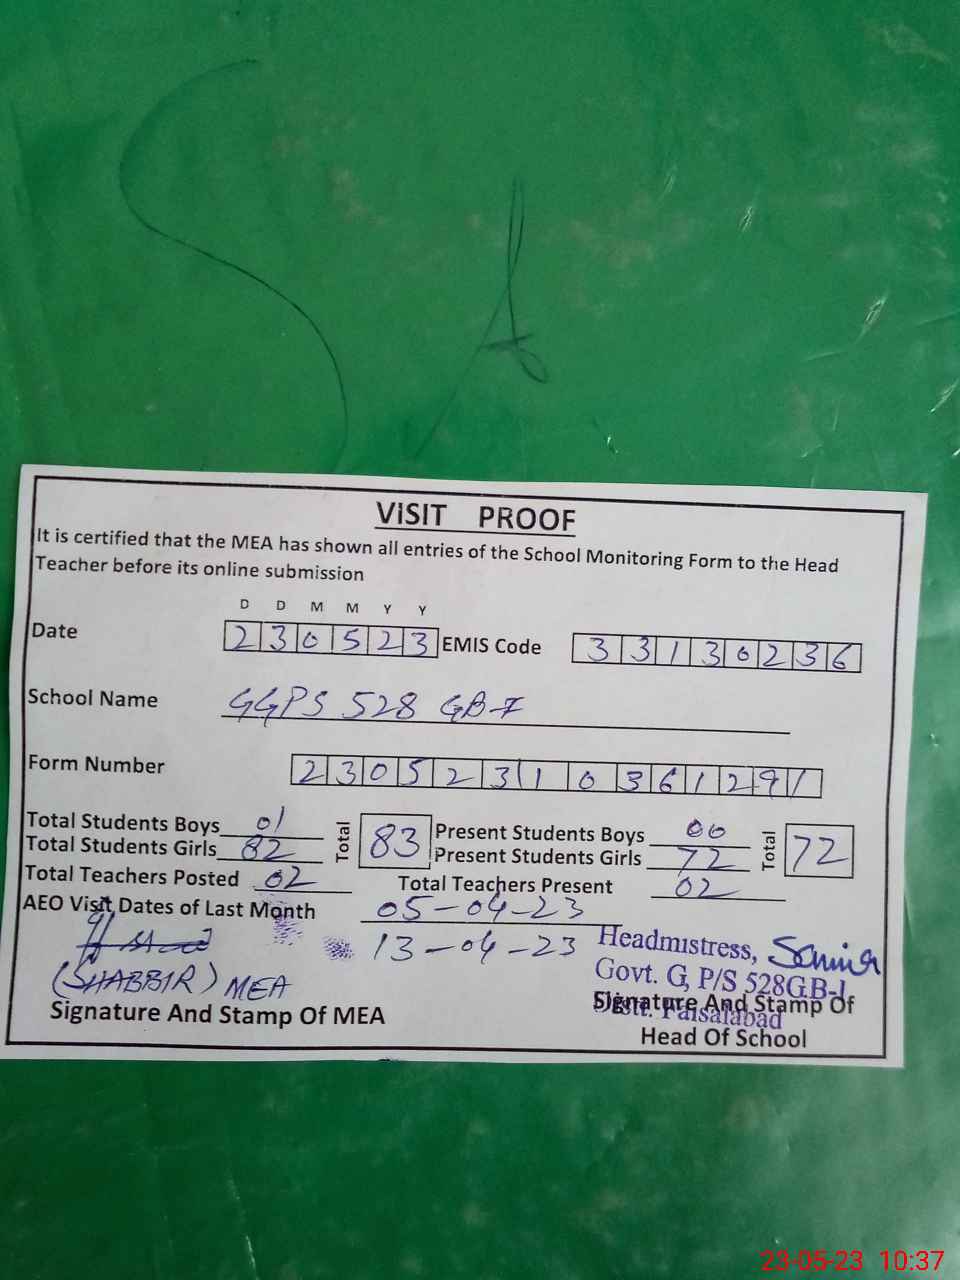 VISIT PROOF
It is certified that the MEA has shown all entries of the School Monitoring Form to the Head
Teacher before its online submission
D D M M Y Y
Date 2 3 0 5 2 3 EMIS Code 3 3 1 3 0 2 3 6
School Name GGPS 528 GB-I
Form Number 2 3 0 5 2 3 1 0 3 6 1 2 9 1
Total Students Boys 01 Total 83 Present Students Boys 00 Total 72
Total Students Girls 82 Present Students Girls 72
Total Teachers Posted 02 Total Teachers Present 02
AEO Visit Dates of Last Month 05-04-23
13-04-23
Headmistress, Samia
Govt. G, P/S 528G.B-I
Distt. Faisalabad
(SHABBIR) MEA
Signature And Stamp Of MEA
Signature And Stamp Of
Head Of School
23-05-23 10:37